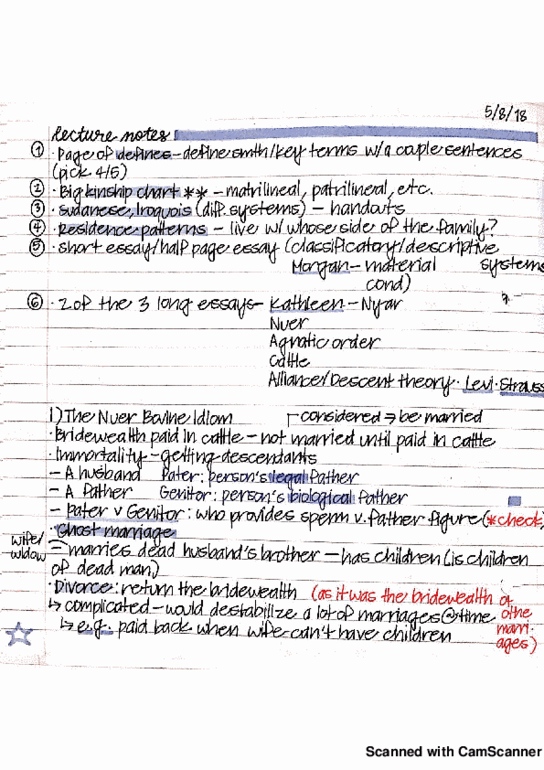 5/8/18
lecture notes
① · Page of defines – define smth/key terms w/a couple sentences
(pick 4/5)
② · Big kinship chart ** – matrilineal, patrilineal, etc.
③ · sudanese, Iroquois (diff. systems) – handouts
④ · Residence patterns – live w/ whose side of the family?
⑤ · short essay/half page essay (classificatory/descriptive
Morgan – material systems
cond)
⑥ · 2 of the 3 long essays – Kathleen – Nyar
Nuer
Agnatic order
Cattle
Alliance/Descent theory · Levi-Strauss
1) The Nuer Bovine Idiom
considered → be married
· Bridewealth paid in cattle – not married until paid in cattle
· Immortality – getting descendants
– A husband Pater: person's legal Father
– A Father Genitor: person's biological Father
– Pater v Genitor: who provides sperm v. father figure (*check
· Ghost marriage
wife/
widow
– marries dead husband's brother – has children (is children
of dead man)
· Divorce: return the bridewealth (as it was the bridewealth of
↳ complicated – would destabilize a lot of marriages @ time othe
↳ e.g. paid back when wife can't have children marri-
ages)
Scanned with CamScanner